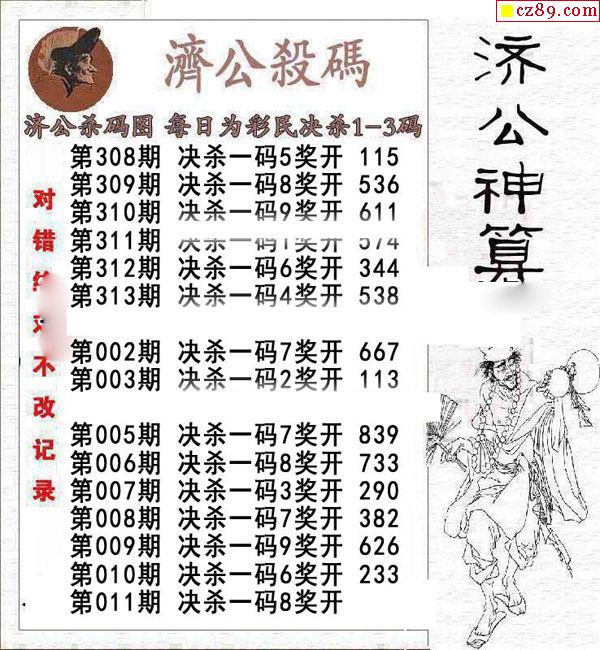 cz89.com
濟公殺碼
济公杀码图 每日为彩民决杀1-3码
第308期 决杀一码5奖开 115
第309期 决杀一码8奖开 536
第310期 决杀一码9奖开 611
第311期 决杀一码1奖开 574
第312期 决杀一码6奖开 344
第313期 决杀一码4奖开 538
第002期 决杀一码7奖开 667
第003期 决杀一码2奖开 113
第005期 决杀一码7奖开 839
第006期 决杀一码8奖开 733
第007期 决杀一码3奖开 290
第008期 决杀一码7奖开 382
第009期 决杀一码9奖开 626
第010期 决杀一码6奖开 233
第011期 决杀一码8奖开
对错 不改记录
济公神算